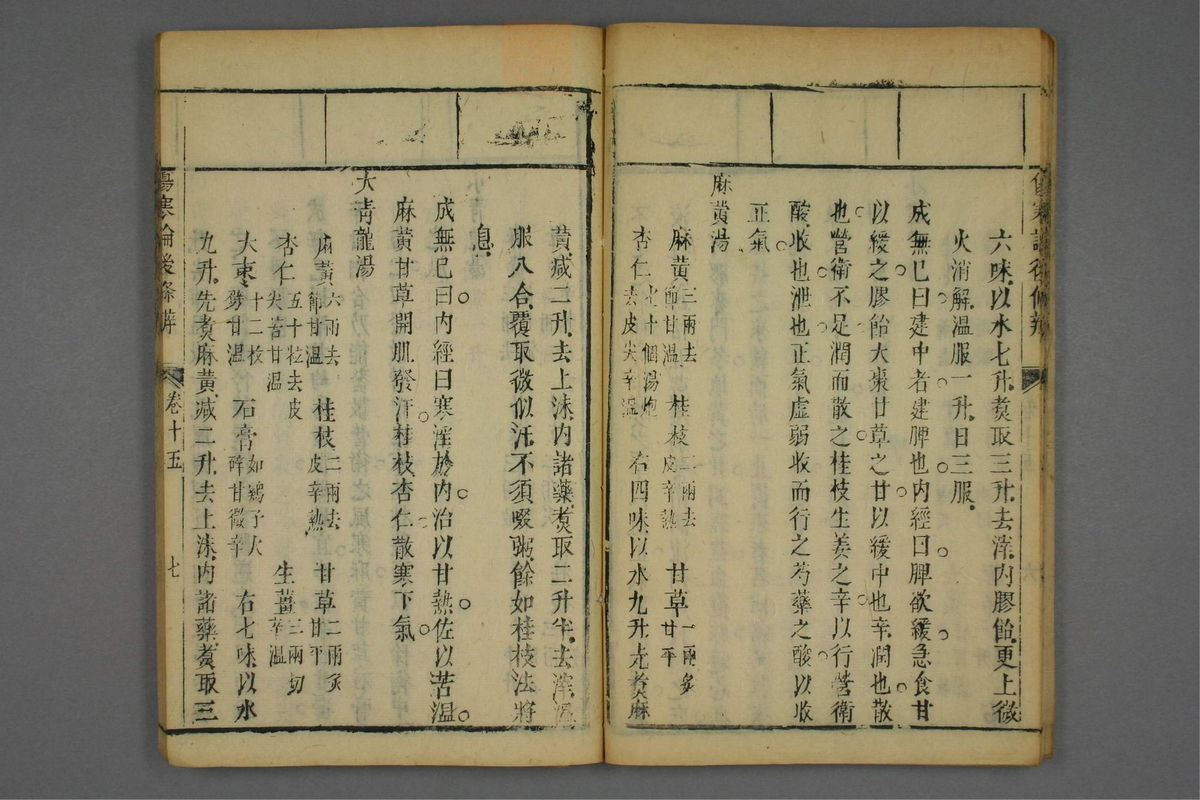 六味以水七升煮取三升去滓內膠飴更上微
火消解溫服一升日三服
成無已曰建中者建脾也內經曰脾欲緩急食甘
以緩之膠飴大棗甘草之甘以緩中也辛潤也散
也營衛不足潤而散之桂枝生姜之辛以行營衛
酸收也泄也正氣虛弱收而行之芍藥之酸以收
正氣
麻黃湯
麻黃三兩去節甘溫 桂枝二兩去皮辛熱 甘草一兩炙甘平
杏仁七十個湯炮去皮尖辛溫 右四味以水九升先煮麻
黃減二升去上沫內諸藥煮取二升半去滓溫
服八合覆取微似汗不須啜粥餘如桂枝法將
息
成無已曰內經曰寒淫於內治以甘熱佐以苦溫
麻黃甘草開肌發汗桂枝杏仁散寒下氣
大靑龍湯
麻黃六兩去節甘溫 桂枝二兩去皮辛熱 甘草二兩炙甘平
杏仁五十粒去皮尖苦甘溫 生薑三兩切辛溫
大棗十二枚擘甘溫 石膏如鷄子大碎甘微辛 右七味以水
九升先煮麻黃減二升去上沫內諸藥煮取三
傷寒論後條辨 卷十五 七